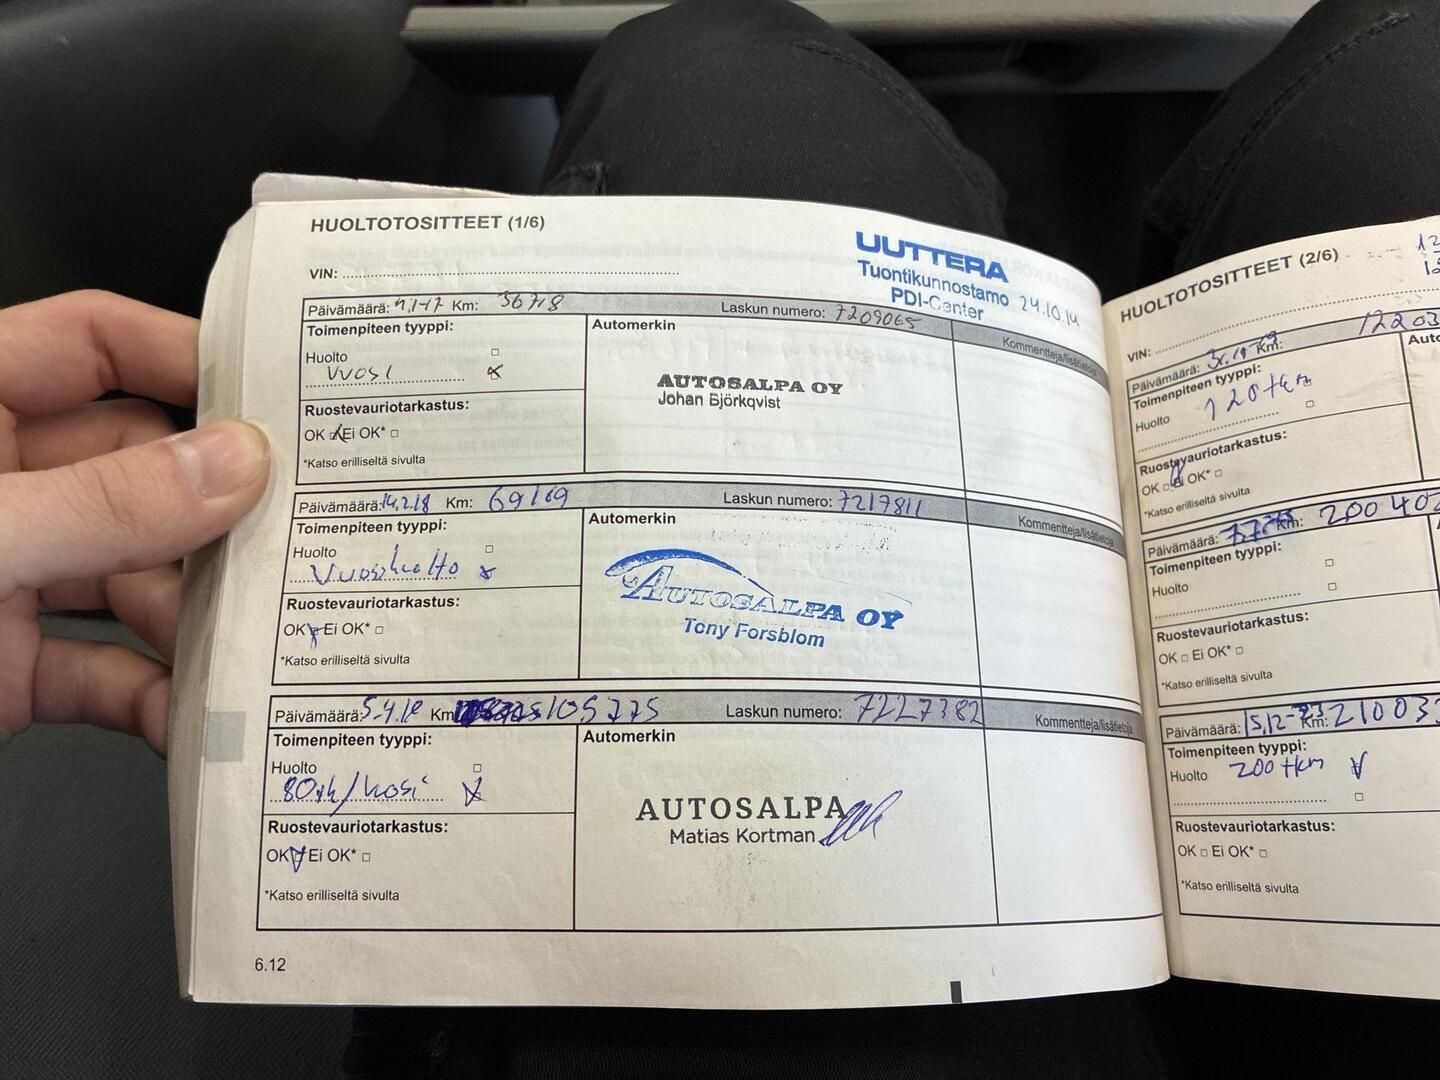 HUOLTOTOSITTEET (1/6)
UUTTERA
Tuontikunnostamo
PDI-Center 24.10.14
VIN:
Päivämäärä: Km: 36718 Laskun numero: 7209065
Toimenpiteen tyyppi:
Automerkin
Kommentteja/lisätietoja
Huolto
vuosi
AUTOSALPA OY
Johan Björkqvist
Ruostevauriotarkastus:
OK Ei OK*
*Katso erilliseltä sivulta
Päivämäärä: 14.2.18 Km: 69169 Laskun numero: 7217811
Toimenpiteen tyyppi:
Automerkin
Kommentteja/lisätietoja
Huolto
Vuosihuolto
AUTOSALPA OY
Tony Forsblom
Ruostevauriotarkastus:
OK Ei OK*
*Katso erilliseltä sivulta
Päivämäärä: Km: 105775 Laskun numero: 7227382
Toimenpiteen tyyppi:
Automerkin
Kommentteja/lisätietoja
Huolto
AUTOSALPA
Matias Kortman
Ruostevauriotarkastus:
OK Ei OK*
*Katso erilliseltä sivulta
6.12
HUOLTOTOSITTEET (2/6)
VIN:
Päivämäärä: Km: 12203
Toimenpiteen tyyppi:
Huolto 120 tkm
Ruostevauriotarkastus:
OK Ei OK*
*Katso erilliseltä sivulta
Päivämäärä: Km: 200402
Toimenpiteen tyyppi:
Huolto
Ruostevauriotarkastus:
OK Ei OK*
*Katso erilliseltä sivulta
Päivämäärä: 15.12-23 Km: 21003
Toimenpiteen tyyppi:
Huolto 200 tkm
Ruostevauriotarkastus:
OK Ei OK*
*Katso erilliseltä sivulta